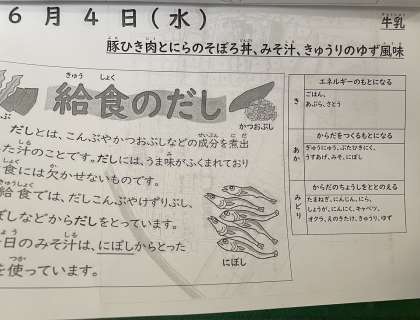 6月4日(水)
牛乳
豚ひき肉とにらのそぼろ丼、みそ汁、きゅうりのゆず風味
給食のだし
かつおぶし
だしとは、こんぶやかつおぶしなどの成分を煮出
た汁のことです。だしには、うま味がふくまれており
食には欠かせないものです。
給食では、だしこんぶやけずりぶし、
ぼしなどからだしをとっています。
日のみそ汁は、にぼしからとった
を使っています。
にぼし
エネルギーのもとになる
き
ごはん、
あぶら、さとう
からだをつくるもとになる
あか
ぎゅうにゅう、ぶたひきにく、
うすあげ、みそ、にぼし
からだのちょうしをととのえる
みどり
たまねぎ、にんじん、にら、
しょうが、にんにく、キャベツ、
オクラ、えのきたけ、きゅうり、ゆず